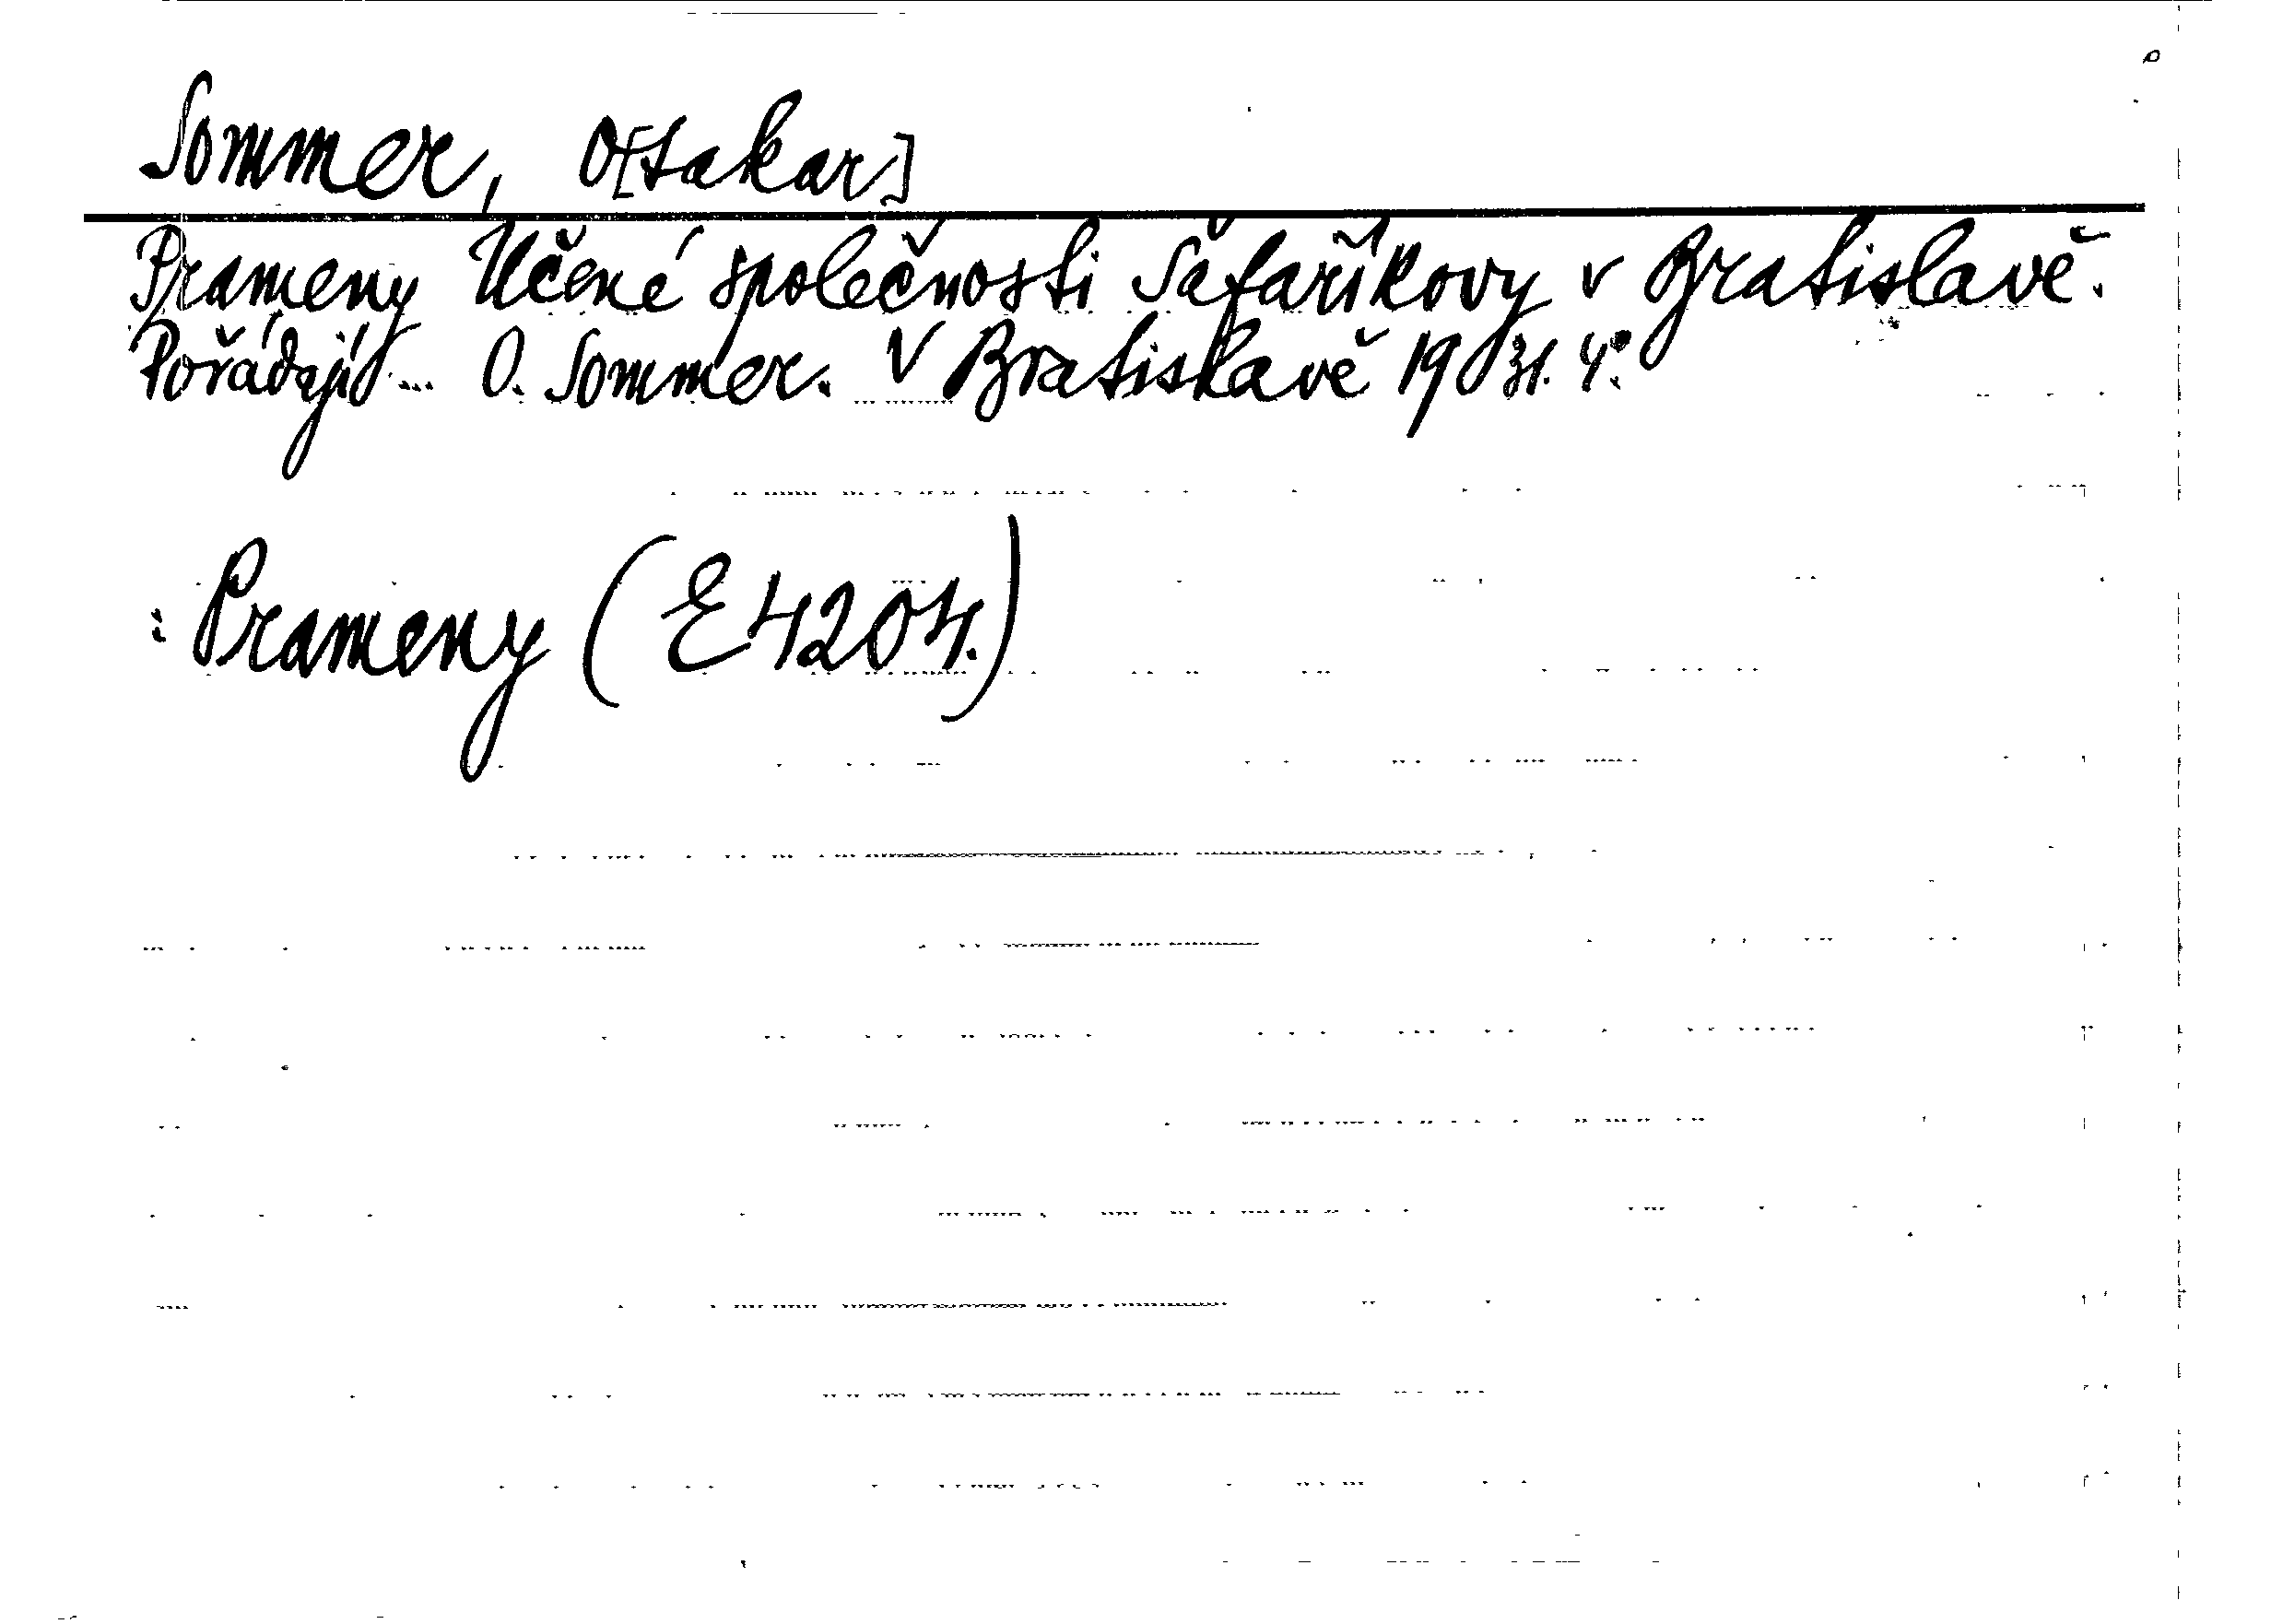 Sommer, O[takar]
Prameny Učené společnosti Šafaříkovy v Bratislavě.
Pořádají ... O. Sommer. V Bratislavě 1931. 4°.
: Prameny (E 4204.)